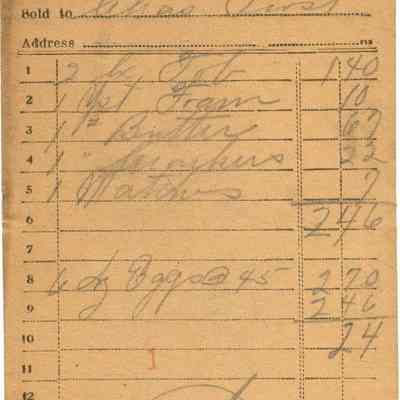 Sold to Chas Frost
Address
1 2 lb Tob 1 40
2 1 Foam 10
3 1 # Butter 67
4 1 " 22
5 1 Matches 7
6 2 46
7
8 6 dz Eggs @ 45 2 70
9 2 46
10 24
11 1
12